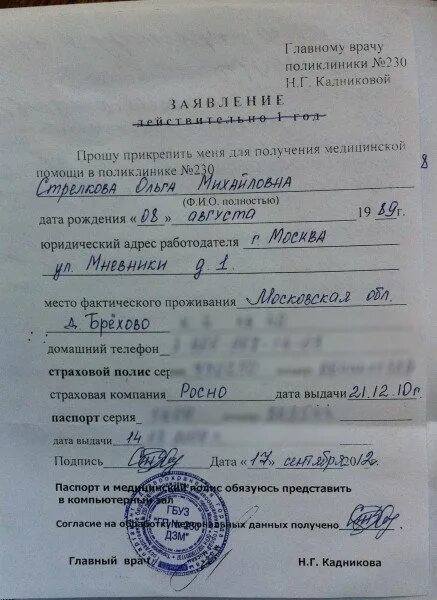 Главному врачу
поликлиники №230
Н.Г. Кадниковой
ЗАЯВЛЕНИЕ
действительно 1 год
Прошу прикрепить меня для получения медицинской
помощи в поликлинике №230
8
Стрелкова Ольга Михайловна
(Ф.И.О. полностью)
дата рождения «08» августа 1989г.
юридический адрес работодателя г. Москва
ул. Мневники д. 1.
место фактического проживания Московская обл.
д. Брёхово
домашний телефон
страховой полис сер
страховая компания Росно дата выдачи 21.12.10г.
паспорт серия
дата выдачи 14
Подпись Дата «17» сентября 2012г.
Паспорт и медицинский полис обязуюсь представить
в компьютерный зал
Согласие на обработку персональных данных получено
ГБУЗ
"ГП № 230
ДЗМ"
Главный врач Н.Г. Кадникова